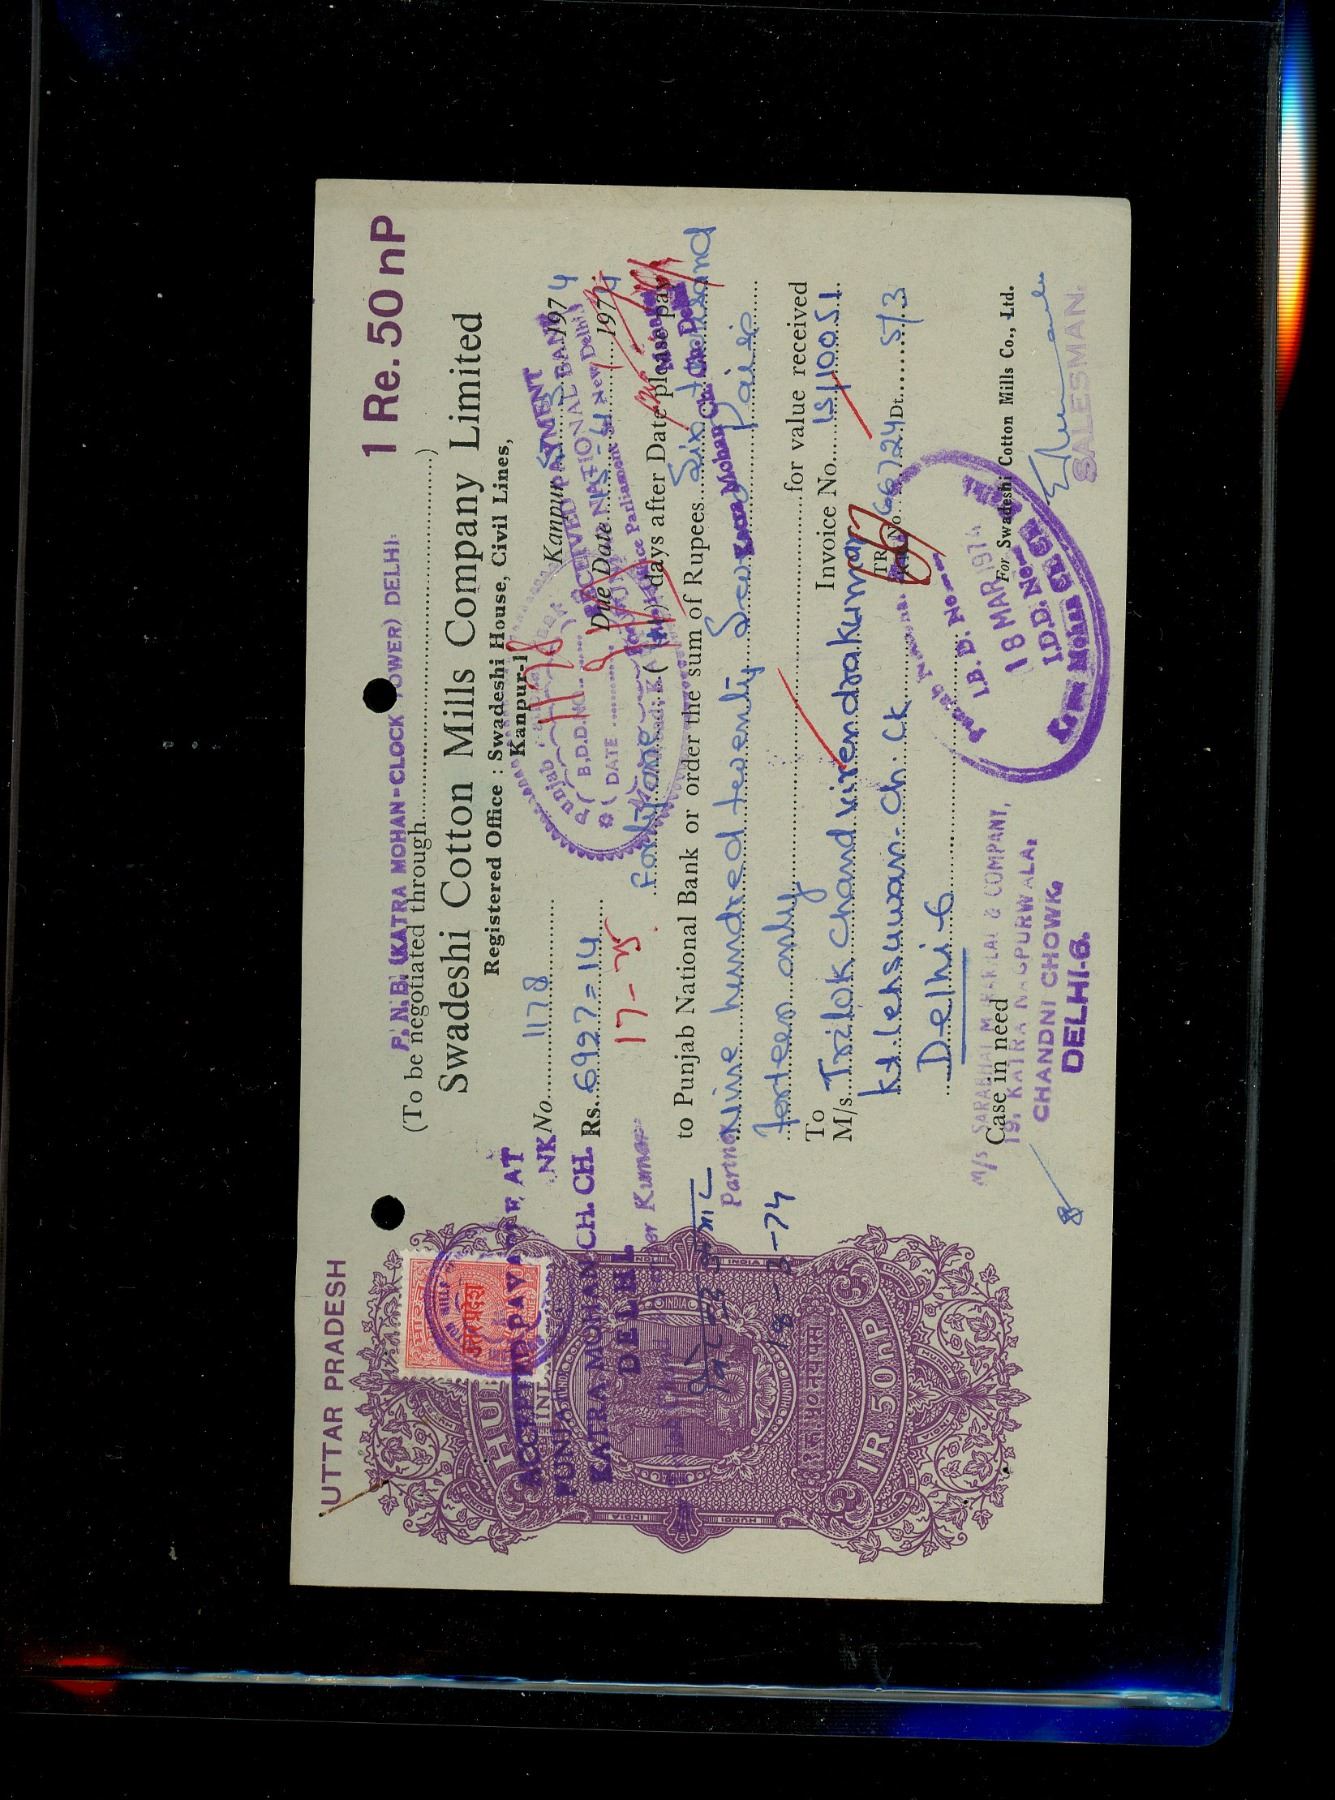 UTTAR PRADESH
1 Re. 50 nP
P.N.B. (KATRA MOHAN-CLOCK TOWER) DELHI.
(To be negotiated through....................)
Swadeshi Cotton Mills Company Limited
Registered Office : Swadeshi House, Civil Lines,
Kanpur-1
No. 1178
Kanpur 5/3 1974
Rs. 6927=14
Due Date 15-4 1974
17-25
Forty one days after Date please pay
to Punjab National Bank or order the sum of Rupees Six thousand
Nine hundred twenty Seven Paise
forteen only
for value received
To
M/s. Trilok Chand virendrakumar
Invoice No. 1S/10051
Kt. lehsuwan. Ch. Ck
66724 Dt. 5/3
Delhi-6
For Swadeshi Cotton Mills Co., Ltd.
SALESMAN.
Case in need
M/s SARABHAI MAKKLAL & COMPANY,
19, KATRA NAGPURWALA,
CHANDNI CHOWK,
DELHI-6.
ACCEPTED PAYABLE AT
PUNJA NK
KATRA MOHAN CH. CH.
DELHI
Kumar
18-3-74
PAYMENT
RECEIVED
NATIONAL BANK
Parliament St New Delhi
B.D.D. NO.
1178
DATE
Punjab National
I.B.D. No.
18 MAR 1974
I.D.D. No.
Katra Mohan Ch. Ck. Delhi
भारत
INDIA
HUNDI
१ रु. ५० न.पै.
1R. 50 NP